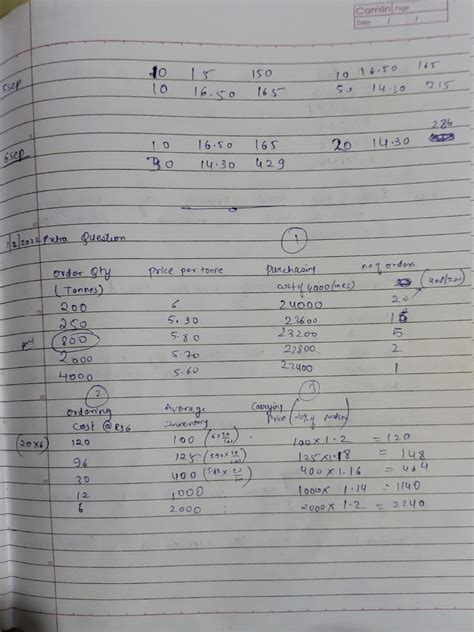 Camlin Page
Date / /
10 15 150 10 16.50 165
5 sep 10 16.50 165 50 14.30 715
286
6 sep 10 16.50 165 20 14.30
30 14.30 429
/2/2022 Extra Question
1
Order Qty Price per tonne Purchasing no of orders
(Tonnes) cost of 4000 (400/200)
200 6 24000 20
250 5.90 23600 16
800 5.80 23200 5
2000 5.70 22800 2
4000 5.60 22400 1
2 3
Ordering Average Carrying
Cost @ Rs 6 Inventory Price (20% of
(20x6) 120 100 100 x 1.2 = 120
96 125 125 x 1.18 = 148
30 400 400 x 1.16 = 464
12 1000 1000 x 1.14 = 1140
6 2000 2000 x 1.2 = 2240